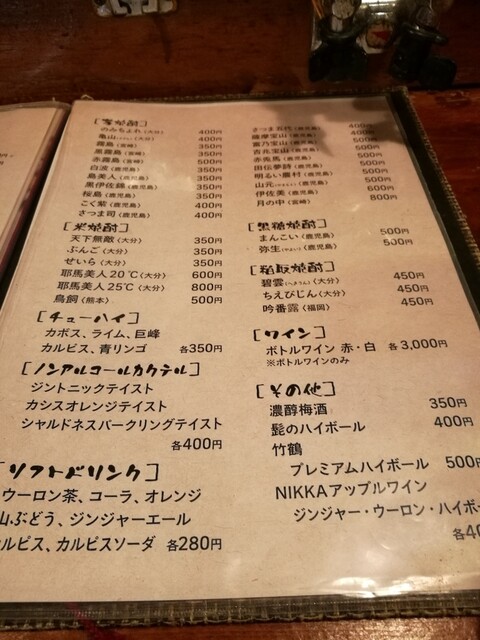 [芋焼酎]
のみちょれ〈大分〉 400円
亀山〈大分〉 400円
霧島〈宮崎〉 350円
黒霧島〈宮崎〉 350円
赤霧島〈宮崎〉 500円
白波〈鹿児島〉 350円
島美人〈鹿児島〉 350円
黒伊佐錦〈鹿児島〉 350円
桜島〈鹿児島〉 350円
こく紫〈鹿児島〉 400円
さつま司〈鹿児島〉 400円
[米焼酎]
天下無敵〈大分〉 350円
ぶんご〈大分〉 350円
せいら〈大分〉 350円
耶馬美人20℃〈大分〉 600円
耶馬美人25℃〈大分〉 800円
鳥飼〈熊本〉 500円
[チューハイ]
カボス、ライム、巨峰
カルピス、青リンゴ 各350円
[ノンアルコールカクテル]
ジントニックテイスト
カシスオレンジテイスト
シャルドネスパークリングテイスト
各400円
[ソフトドリンク]
ウーロン茶、コーラ、オレンジ
山ぶどう、ジンジャーエール
カルピス、カルピスソーダ 各280円
さつま五代〈鹿児島〉 400円
薩摩宝山〈鹿児島〉 400円
富乃宝山〈鹿児島〉 500円
吉兆宝山〈鹿児島〉 500円
赤兎馬〈鹿児島〉 500円
田伝夢詩〈鹿児島〉 500円
明るい農村〈鹿児島〉 500円
山元〈鹿児島〉 600円
伊佐美〈鹿児島〉 800円
月の中〈宮崎〉 800円
[黒糖焼酎]
まんこい〈鹿児島〉 500円
弥生〈鹿児島〉 500円
[粕取焼酎]
碧雲〈大分〉 450円
ちえびじん〈大分〉 450円
吟番露〈福岡〉 450円
[ワイン]
ボトルワイン 赤・白 各3,000円
※ボトルワインのみ
[その他]
濃醇梅酒 350円
髭のハイボール 400円
竹鶴
プレミアムハイボール 500円
NIKKAアップルワイン
ジンジャー・ウーロン・ハイボー
各40